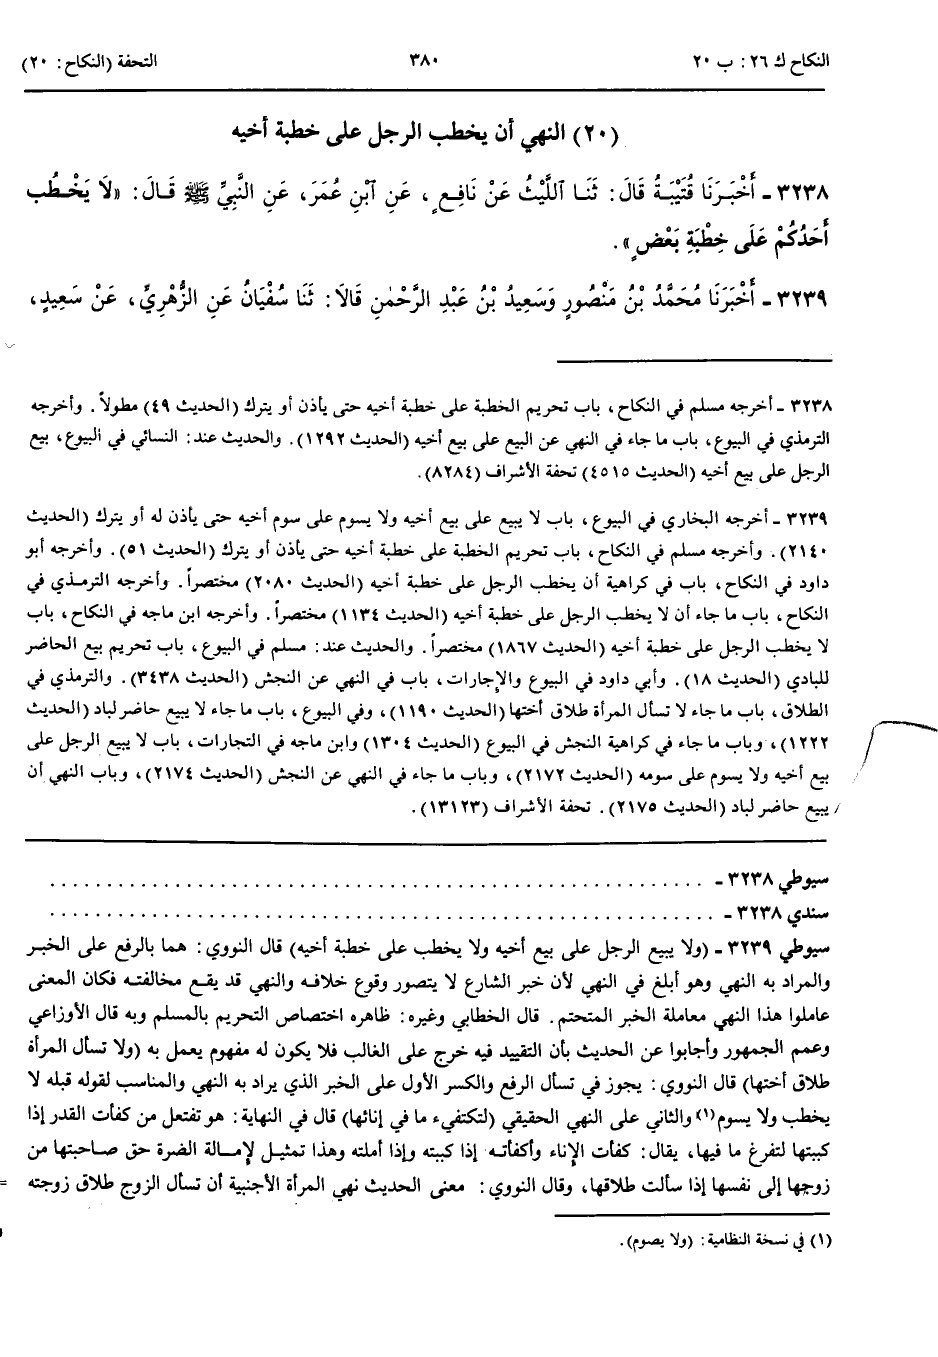 النكاح ك ٢٦: ب ٢٠
٣٨٠
التحفة (النكاح: ٢٠)
(٢٠) النهي أن يخطب الرجل على خطبة أخيه
٣٢٣٨ - أَخْبَرَنَا قُتَيْبَةُ قَالَ: ثَنَا ٱللَّيْثُ عَنْ نَافِعٍ، عَنِ ٱبْنِ عُمَرَ، عَنِ النَّبِيِّ ﷺ قَالَ: «لَا يَخْطُب
أَحَدُكُمْ عَلَى خِطْبَةِ بَعْضٍ».
٣٢٣٩ - أَخْبَرَنَا مُحَمَّدُ بْنُ مَنْصُورٍ وَسَعِيدُ بْنُ عَبْدِ الرَّحْمٰنِ قَالَا: ثَنَا سُفْيَانُ عَنِ الزُّهْرِيِّ، عَنْ سَعِيدٍ،
٣٢٣٨ - أخرجه مسلم في النكاح، باب تحريم الخطبة على خطبة أخيه حتى يأذن أو يترك (الحديث ٤٩) مطولاً. وأخرجه
الترمذي في البيوع، باب ما جاء في النهي عن البيع على بيع أخيه (الحديث ١٢٩٢). والحديث عند: النسائي في البيوع، بيع
الرجل على بيع أخيه (الحديث ٤٥١٥) تحفة الأشراف (٨٢٨٤).
٣٢٣٩ - أخرجه البخاري في البيوع، باب لا يبيع على بيع أخيه ولا يسوم على سوم أخيه حتى يأذن له أو يترك (الحديث
٢١٤٠). وأخرجه مسلم في النكاح، باب تحريم الخطبة على خطبة أخيه حتى يأذن أو يترك (الحديث ٥١). وأخرجه أبو
داود في النكاح، باب في كراهية أن يخطب الرجل على خطبة أخيه (الحديث ٢٠٨٠) مختصراً. وأخرجه الترمذي في
النكاح، باب ما جاء أن لا يخطب الرجل على خطبة أخيه (الحديث ١١٣٤) مختصراً. وأخرجه ابن ماجه في النكاح، باب
لا يخطب الرجل على خطبة أخيه (الحديث ١٨٦٧) مختصراً. والحديث عند: مسلم في البيوع، باب تحريم بيع الحاضر
للبادي (الحديث ١٨). وأبي داود في البيوع والإجارات، باب في النهي عن النجش (الحديث ٣٤٣٨). والترمذي في
الطلاق، باب ما جاء لا تسأل المرأة طلاق أختها (الحديث ١١٩٠)، وفي البيوع، باب ما جاء لا يبيع حاضر لباد (الحديث
١٢٢٢)، وباب ما جاء في كراهية النجش في البيوع (الحديث ١٣٠٤) وابن ماجه في التجارات، باب لا يبيع الرجل على
بيع أخيه ولا يسوم على سومه (الحديث ٢١٧٢)، وباب ما جاء في النهي عن النجش (الحديث ٢١٧٤)، وباب النهي أن
يبيع حاضر لباد (الحديث ٢١٧٥). تحفة الأشراف (١٣١٢٣).
سيوطي ٣٢٣٨ - ..........................................................
سندي ٣٢٣٨ - ..........................................................
سيوطي ٣٢٣٩ - (ولا يبيع الرجل على بيع أخيه ولا يخطب على خطبة أخيه) قال النووي: هما بالرفع على الخبر
والمراد به النهي وهو أبلغ في النهي لأن خبر الشارع لا يتصور وقوع خلافه والنهي قد يقع مخالفته فكان المعنى
عاملوا هذا النهي معاملة الخبر المتحتم. قال الخطابي وغيره: ظاهره اختصاص التحريم بالمسلم وبه قال الأوزاعي
وعمم الجمهور وأجابوا عن الحديث بأن التقييد فيه خرج على الغالب فلا يكون له مفهوم يعمل به (ولا تسأل المرأة
طلاق أختها) قال النووي: يجوز في تسأل الرفع والكسر الأول على الخبر الذي يراد به النهي والمناسب لقوله قبله لا
يخطب ولا يسوم(١) والثاني على النهي الحقيقي (لتكتفيء ما في إنائها) قال في النهاية: هو تفتعل من كفأت القدر إذا
كببتها لتفرغ ما فيها، يقال: كفأت الإناء وأكفأته إذا كببته وإذا أملته وهذا تمثيل لإمالة الضرة حق صاحبتها من
زوجها إلى نفسها إذا سألت طلاقها، وقال النووي: معنى الحديث نهي المرأة الأجنبية أن تسأل الزوج طلاق زوجته =
(١) في نسخة النظامية: (ولا يصوم).